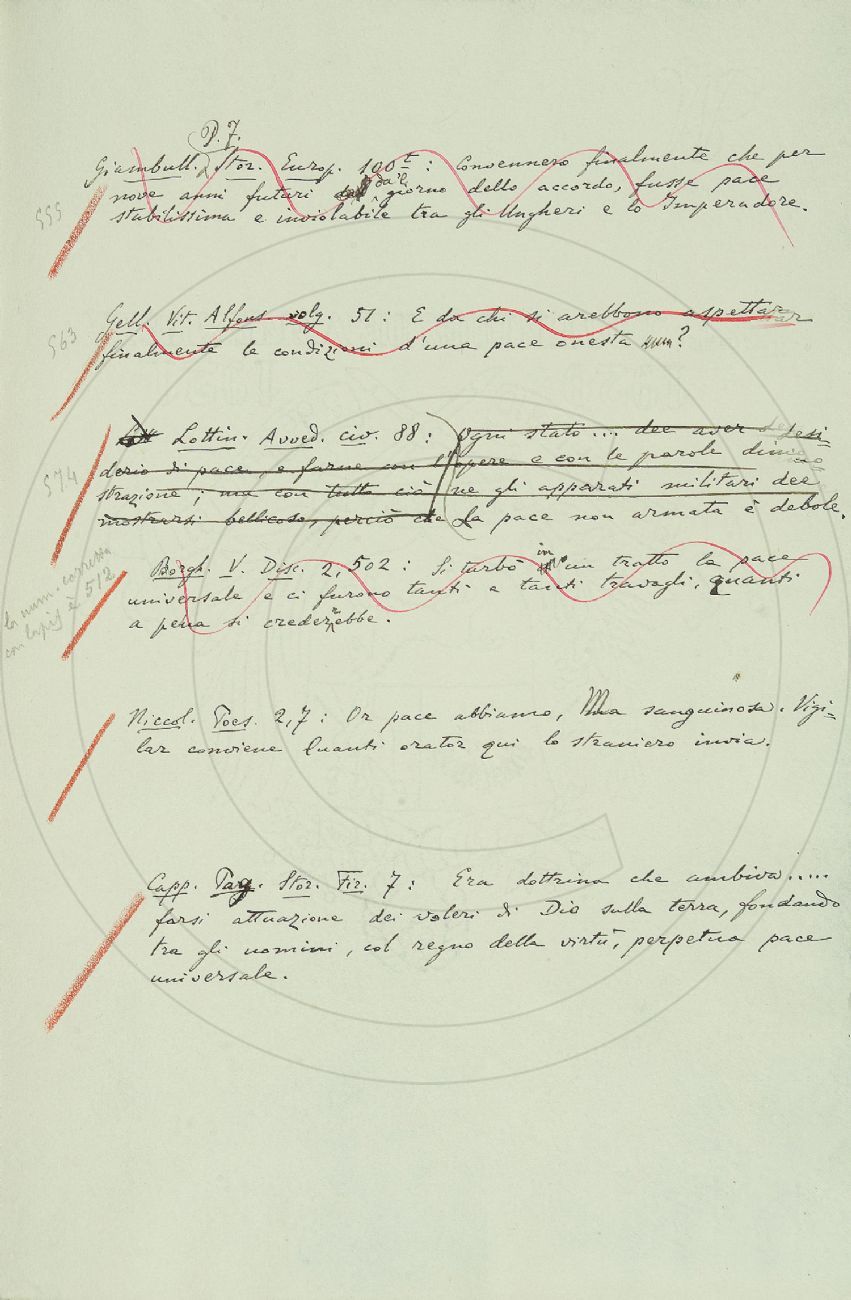 P. 7.
Giambull. Stor. Europ. 100 t: Convennero finalmente che per
nove anni futuri dal giorno dello accordo, fusse pace
stabilissima e inviolabile tra gli Ungheri e lo Imperadore.
555
Gell. Vit. Alfons. volg. 51: E da chi si arebbono aspettar
finalmente le condizioni d'una pace onesta ?
563
Lottin. Avved. civ. 88: Ogni stato... dee aver desi-
derio di pace, e farne con l'opere e con le parole dimo-
strazione; ma con tutto ciò ne gli apparati militari dee
mostrarsi bellicoso, perciò che La pace non armata è debole.
574
Borgh. V. Disc. 2, 502: Si turbò in un tratto la pace
universale e ci furono tanti e tanti travagli, quanti
a pena si crederrebbe.
la num. corressa
con lapis è 512
Niccol. Poes. 2, 7: Or pace abbiamo, Ma sanguinosa. Vigi-
lar conviene Quanti orator qui lo straniero invia.
Capp. Parg. Stor. Fir. 7: Era dottrina che ambiva.....
farsi attuazione dei voleri di Dio sulla terra, fondando
tra gli uomini, col regno della virtù, perpetua pace
universale.